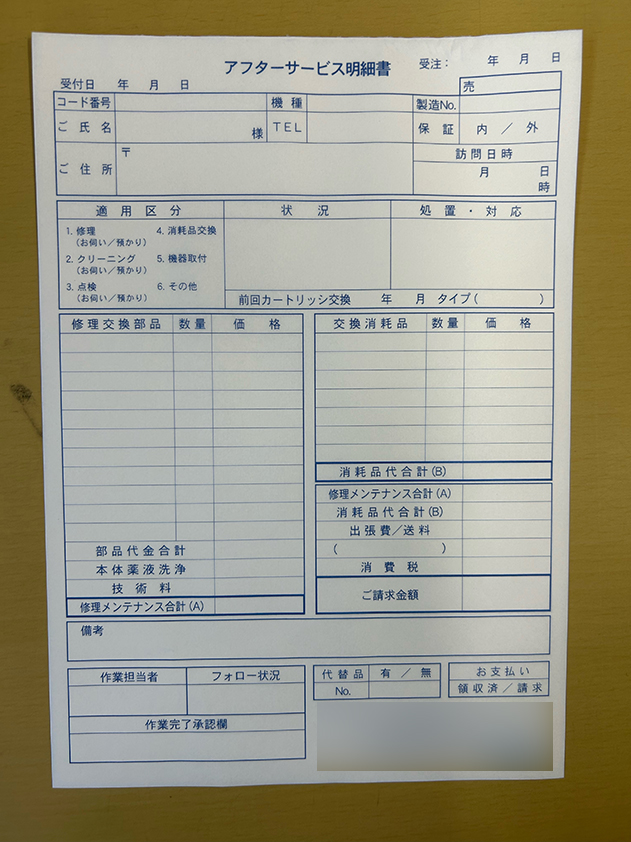 アフターサービス明細書
受注： 年 月 日
受付日 年 月 日
売
コード番号 機種 製造No.
ご氏名 様 TEL 保証 内 ／ 外
ご住所 〒 訪問日時
月 日
時
適用区分 状況 処置・対応
1. 修理 4. 消耗品交換
（お伺い／預かり）
2. クリーニング 5. 機器取付
（お伺い／預かり）
3. 点検 6. その他
（お伺い／預かり）
前回カートリッジ交換 年 月 タイプ（ ）
修理交換部品 数量 価格
部品代金合計
本体薬液洗浄
技術料
修理メンテナンス合計（A）
交換消耗品 数量 価格
消耗品代合計（B）
修理メンテナンス合計（A）
消耗品代合計（B）
出張費／送料
（ ）
消費税
ご請求金額
備考
作業担当者 フォロー状況
作業完了承認欄
代替品 有 ／ 無
No.
お支払い
領収済／請求